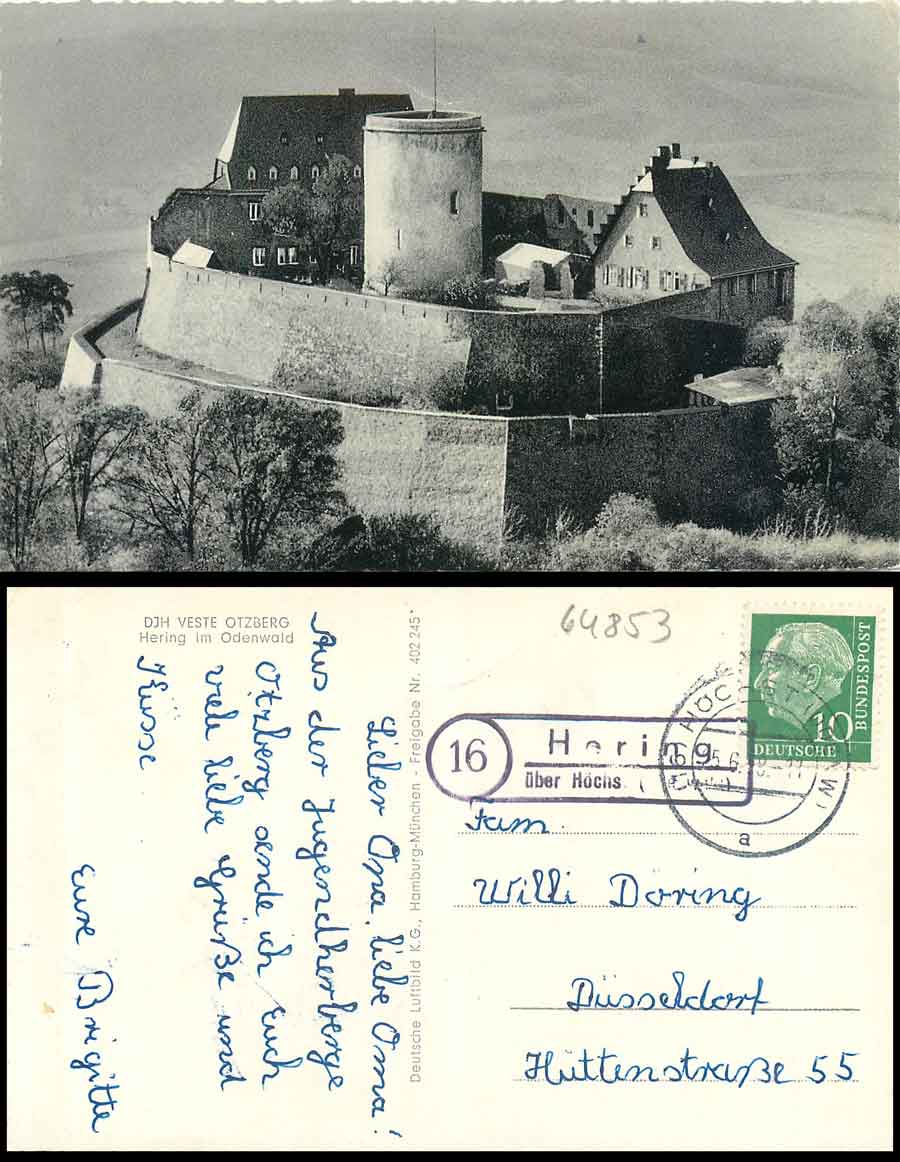 DJH VESTE OTZBERG
Hering im Odenwald
Lieber Opa, liebe Oma!
Aus der Jugendherberge
Otzberg sende ich Euch
viele liebe Grüße und
Küsse
Eure Brigitte
Deutsche Luftbild K.G., Hamburg-München - Freigabe Nr. 402 245
64853
DEUTSCHE
BUNDESPOST
10
16
Hering
über Höchs
a
Fam.
Willi Döring
Düsseldorf
Hüttenstraße 55